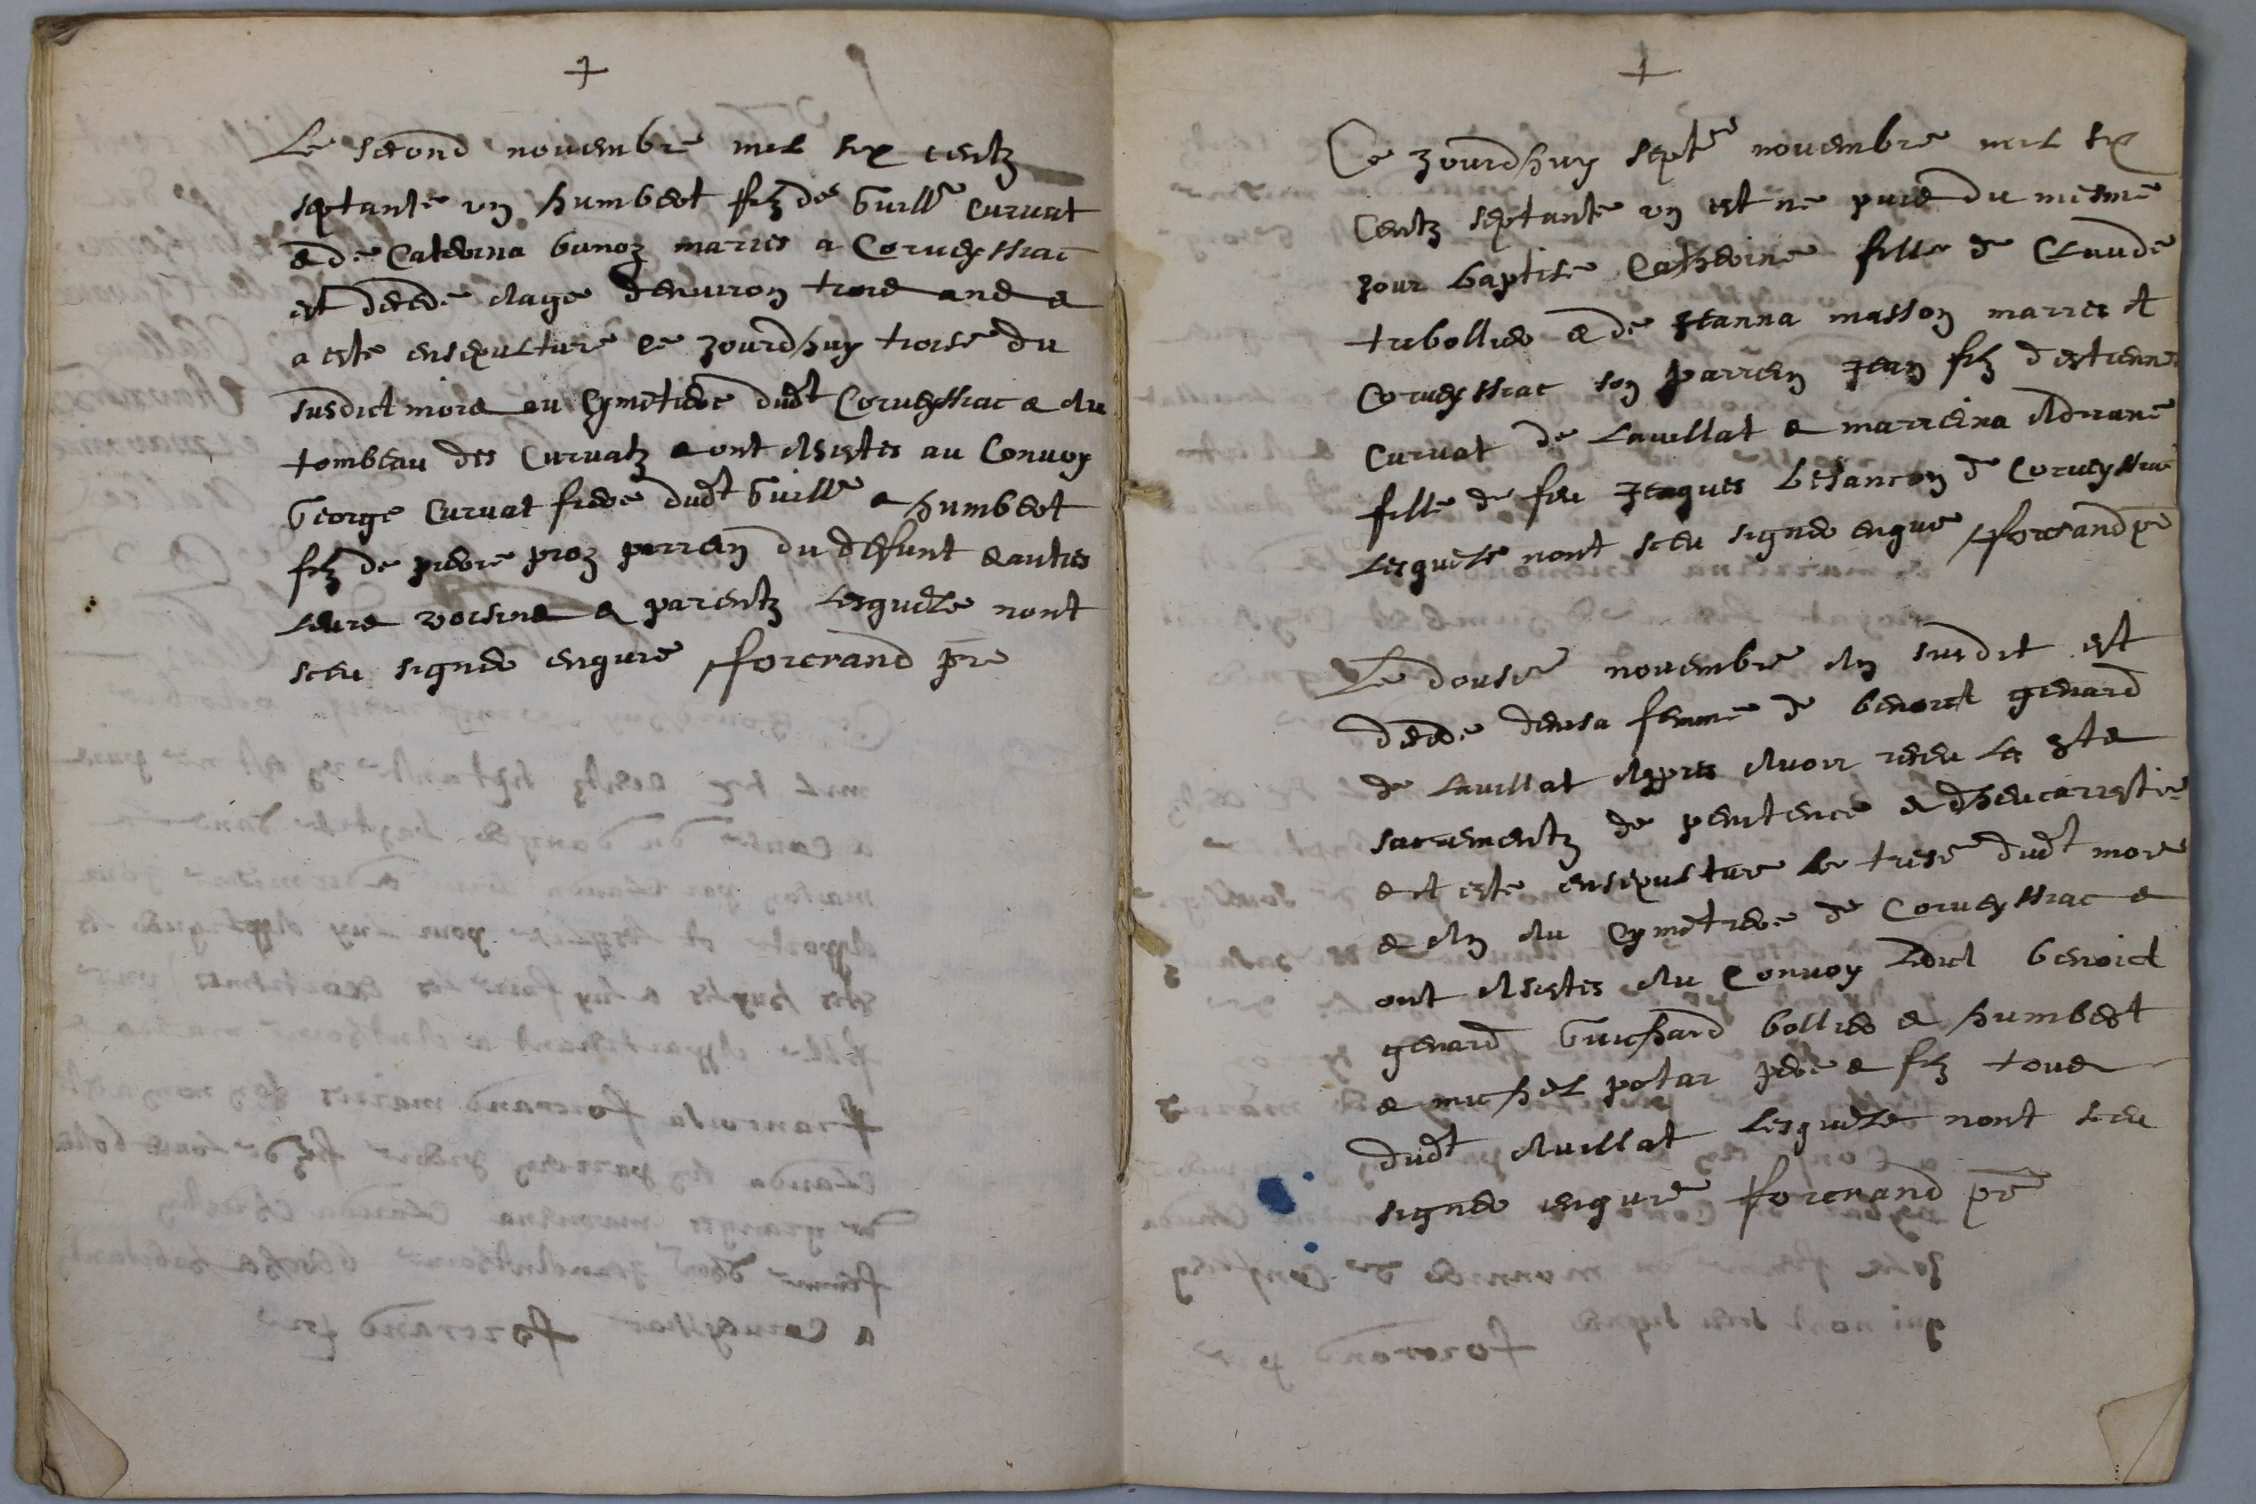 Le second novembre mil six centz
septante un humbert filz de Guille Curvat
& de Caterina bunoz maries a Corveyssiac
est decede aage denviron trois ans &
a este ensepulture ce jourdhuy troise du
susdict mois au Cymetiere dudt Corveyssiac & au
tombeau des Curvatz & ont asistes au Convoy
George Curvat frere dudt Guille & humbert
filz de pierre proz parrein du defunt & autres
leurs voisins & parentz lesquels nont
sceu signer enquis forcrand pre
Ce jourdhuy septe novembre mil six
Centz septante un est ne puis du mesme
jour baptise Catherine fille de Claude
tribollier & de Jeanna masson maries at
Corveyssiac son parrein Jean filz destienne
Curvat de Lavillat & marreina Adriane
fille de feu Jeaques besancon de Corveyssiac
lesquels nont sceu signer enquis forcrand pre
Le douse novembre an susdit est
decede denisa femme de benoict genard
de Lavillat appres avoir receu les sts
sacrementz de penitence & dheucarestie
& at este ensepulture le trese dudt mois
& an au Cymetiere de Corveyssiac &
ont asistes au Convoy ledict benoict
genard Guichard bollier & humbert
& michel potar pere & filz tous
dudt Avillat lesquels nont sceu
signer enquis forcrand pre